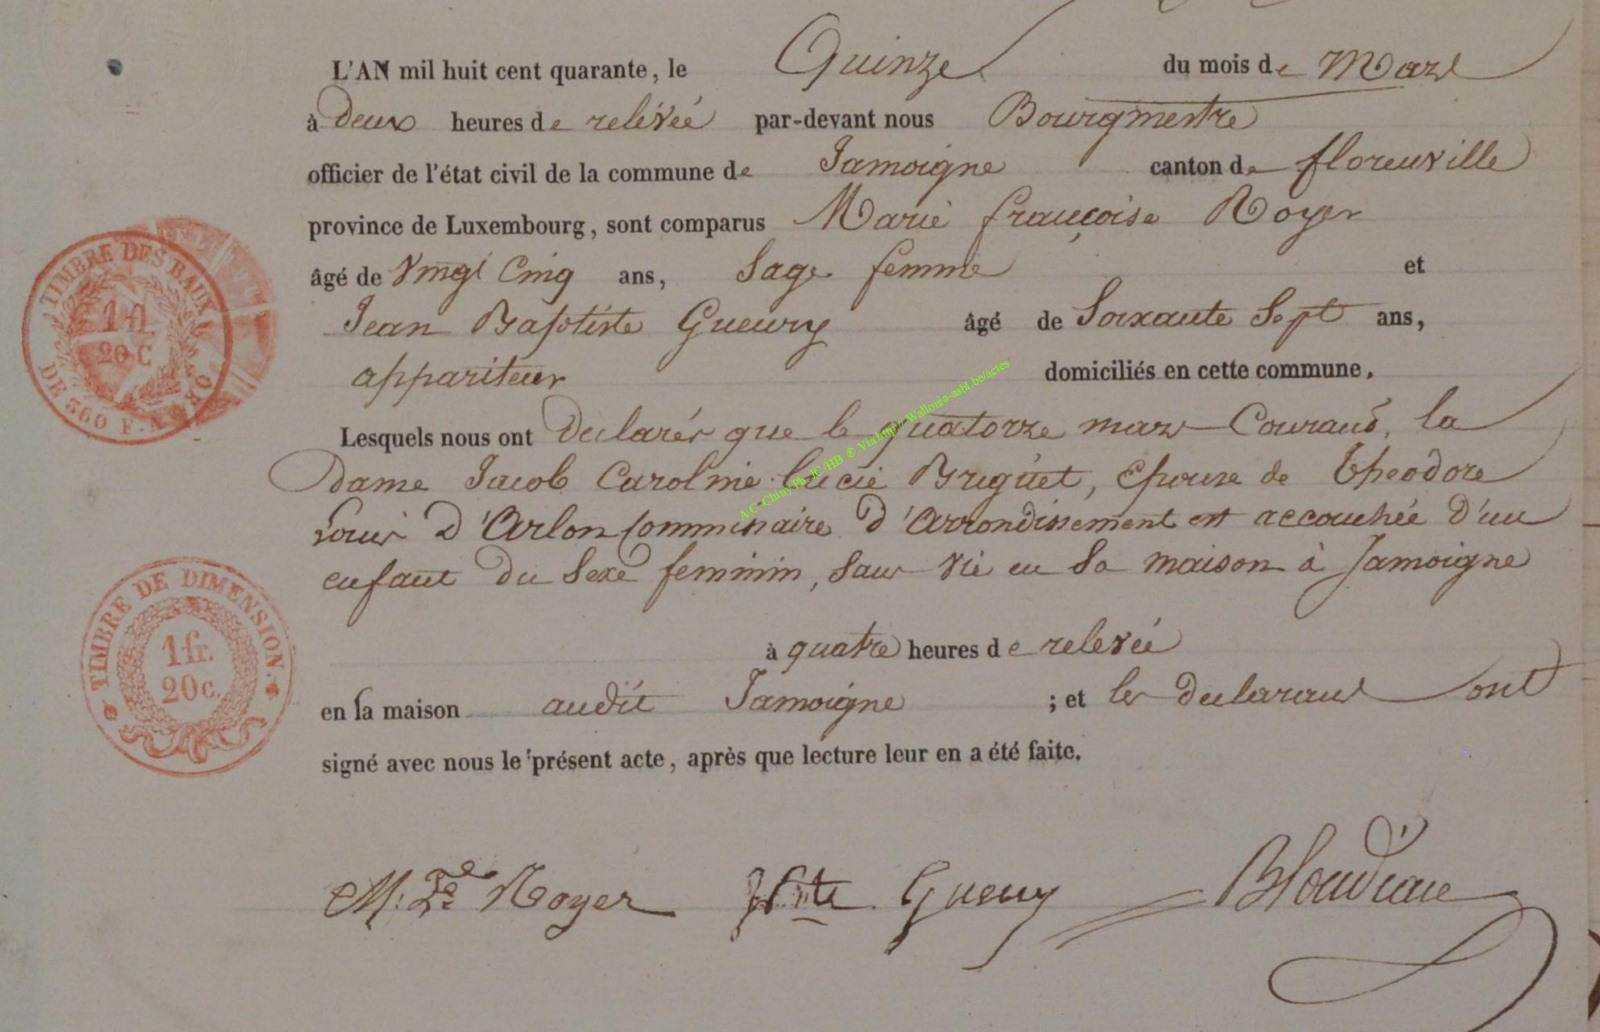 L'AN mil huit cent quarante, le Quinze du mois de Mars
à Deux heures de relévée par-devant nous Bourgmestre
officier de l'état civil de la commune de Jamoigne canton de florenville
province de Luxembourg, sont comparus Marie françoise Noyer
âgé de Vingt Cinq ans, Sage femme et
Jean Baptiste Gueury âgé de Soixante Sept ans,
appariteur domiciliés en cette commune.
Lesquels nous ont Declarés que le quatorze mars Courant, la
Dame Jacob Caroline Lucie Briguet, Epouse de Theodore
Louis D'Arlon Commissaire D'Arrondissement est accouchée D'un
enfant Du Sexe feminin, Sans Vie en Sa maison à Jamoigne
à quatre heures de relevée
en sa maison audit Jamoigne ; et les Declarans ont
signé avec nous le présent acte, après que lecture leur en a été faite.
M. Noyer Gueury
TIMBRE DES BAUX
1 fl.
20 C
DE 360 F.
TIMBRE DE DIMENSION.
1 fr.
20 c.